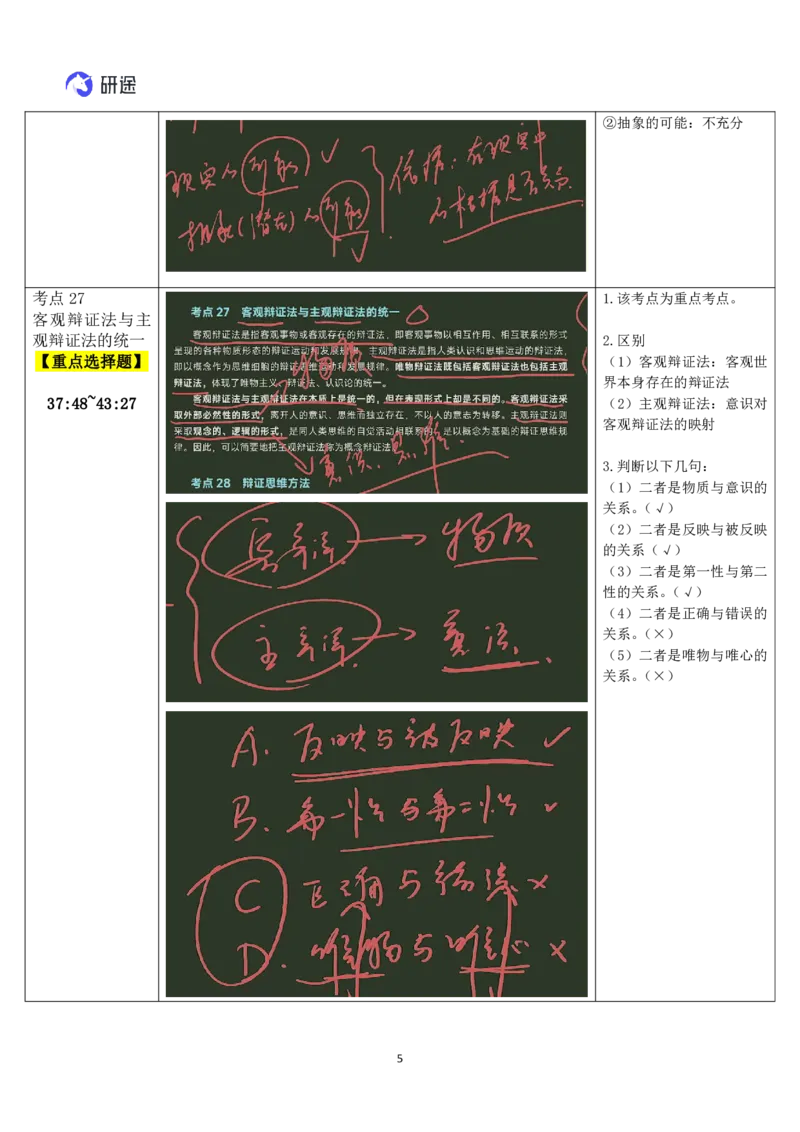 研途
现实的可能 √
抽象(潜在)的可能
依据：在现实中
的根据是否充分
②抽象的可能：不充分
考点 27
客观辩证法与主
观辩证法的统一
【重点选择题】
37:48~43:27
考点 27 客观辩证法与主观辩证法的统一
客观辩证法是指客观事物或客观存在的辩证法，即客观事物以相互作用、相互联系的形式
呈现的各种物质形态的辩证运动和发展规律。主观辩证法是指人类认识和思维运动的辩证法，
即以概念作为思维细胞的辩证思维运动和发展规律。唯物辩证法既包括客观辩证法也包括主观
辩证法，体现了唯物主义、辩证法、认识论的统一。
客观辩证法与主观辩证法在本质上是统一的，但在表现形式上却是不同的。客观辩证法采
取外部必然性的形式，离开人的意识、思维而独立存在，不以人的意志为转移。主观辩证法则
采取观念的、逻辑的形式，是同人类思维的自觉活动相联系的，是以概念为基础的辩证思维规
律。因此，可以简要地把主观辩证法称为概念辩证法
物质
意识、思维.
考点 28 辩证思维方法
客辩法 → 物质
主辩法 → 意识.
A. 反映与被反映 √
B. 第一性与第二性 √
C 正确与错误 ×
D. 唯物与唯心 ×
1.该考点为重点考点。
2.区别
（1）客观辩证法：客观世
界本身存在的辩证法
（2）主观辩证法：意识对
客观辩证法的映射
3.判断以下几句：
（1）二者是物质与意识的
关系。（√）
（2）二者是反映与被反映
的关系（√）
（3）二者是第一性与第二
性的关系。（√）
（4）二者是正确与错误的
关系。（×）
（5）二者是唯物与唯心的
关系。（×）
5